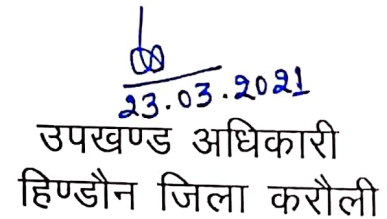 23.03.2021
उपखण्ड अधिकारी
हिण्डौन जिला करौली